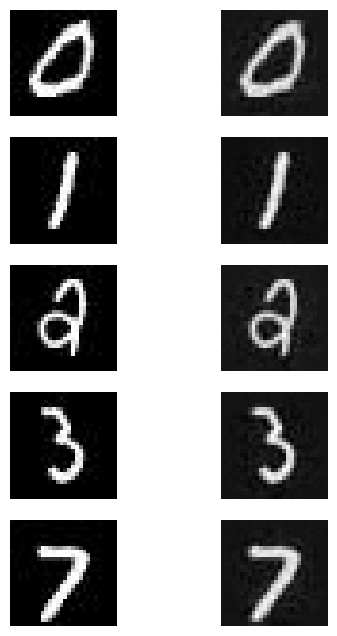 0 0
1 1
2 2
3 3
7 7